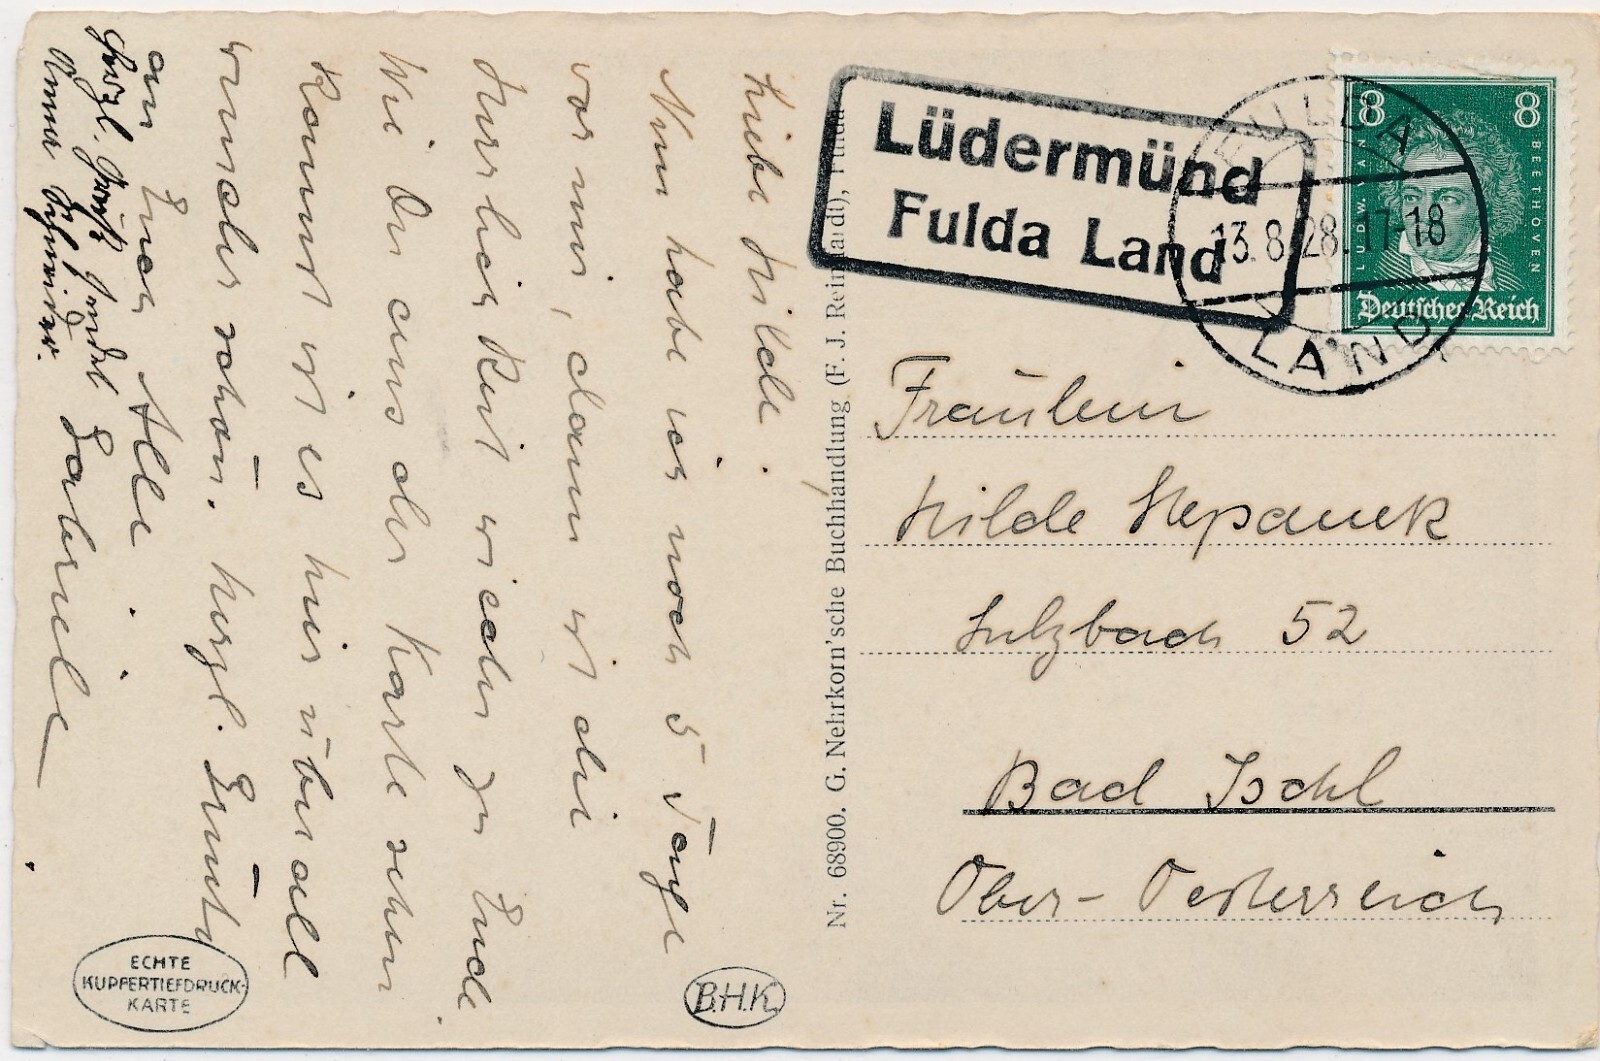 Liebe Hilde!
Nun habe ich noch 5 Tage
vor mir, dann ist die
Herrlichkeit wieder zu Ende.
Wie Du aus der Karte sehen
kannst ist es hier überall
wunderschön. Herzl. Grüße
an Euch Alle
Gabriele
Herzl. Grüße
Anna
ECHTE
KUPFERTIEFDRUCK-
KARTE
B.H.K.
Nr. 68900. G. Nehrkorn'sche Buchhandlung (F. J. Reinhardt), Fulda
Lüdermünd
Fulda Land
FULDA
13.8.28.17-18
LAND
8 8
LUDW. VAN BEETHOVEN
Deutsches Reich
Fräulein
Hilde Stepanek
Sulzbach 52
Bad Ischl
Ober-Oesterreich